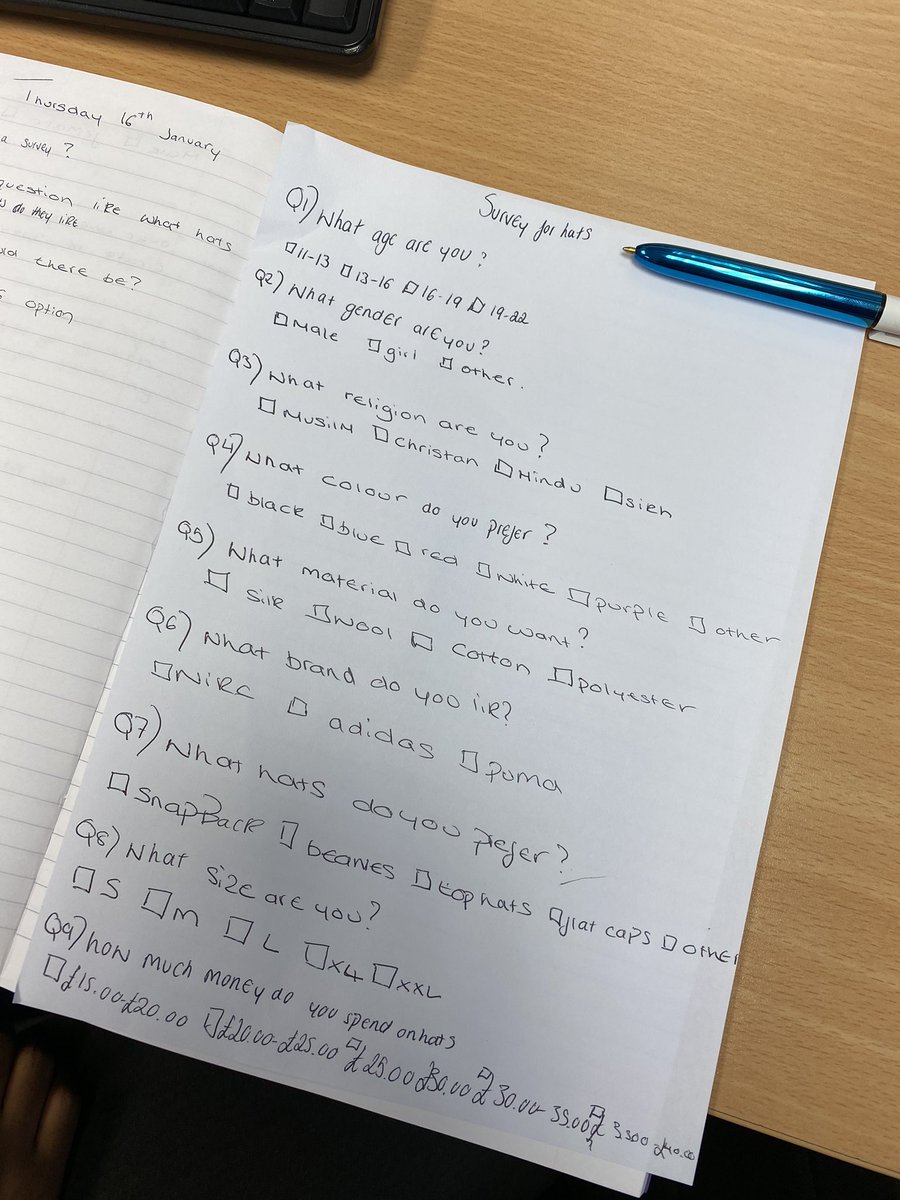 Thursday 16th January
a survey?
question like what hats
do they like
there be?
option
Survey for hats
Q1) What age are you?
11-13 13-16 16-19 19-22
Q2) What gender are you?
Male girl other.
Q3) What religion are you?
Musilm Christan Hindu sikh
Q4) What colour do you prefer?
black blue red White purple other
Q5) What material do you want?
Silk Wool Cotton polyester
Q6) What brand do you lik?
NiKe adidas puma
Q7) What hats do you prefer?
SnapBack beanies top hats flat caps other
Q8) What size are you?
S M L XL XXL
Q9) how much money do you spend on hats
£15.00-£20.00 £20.00-£25.00 £25.00 £30.00 £30.00-35.00 £ 3500 £40.00